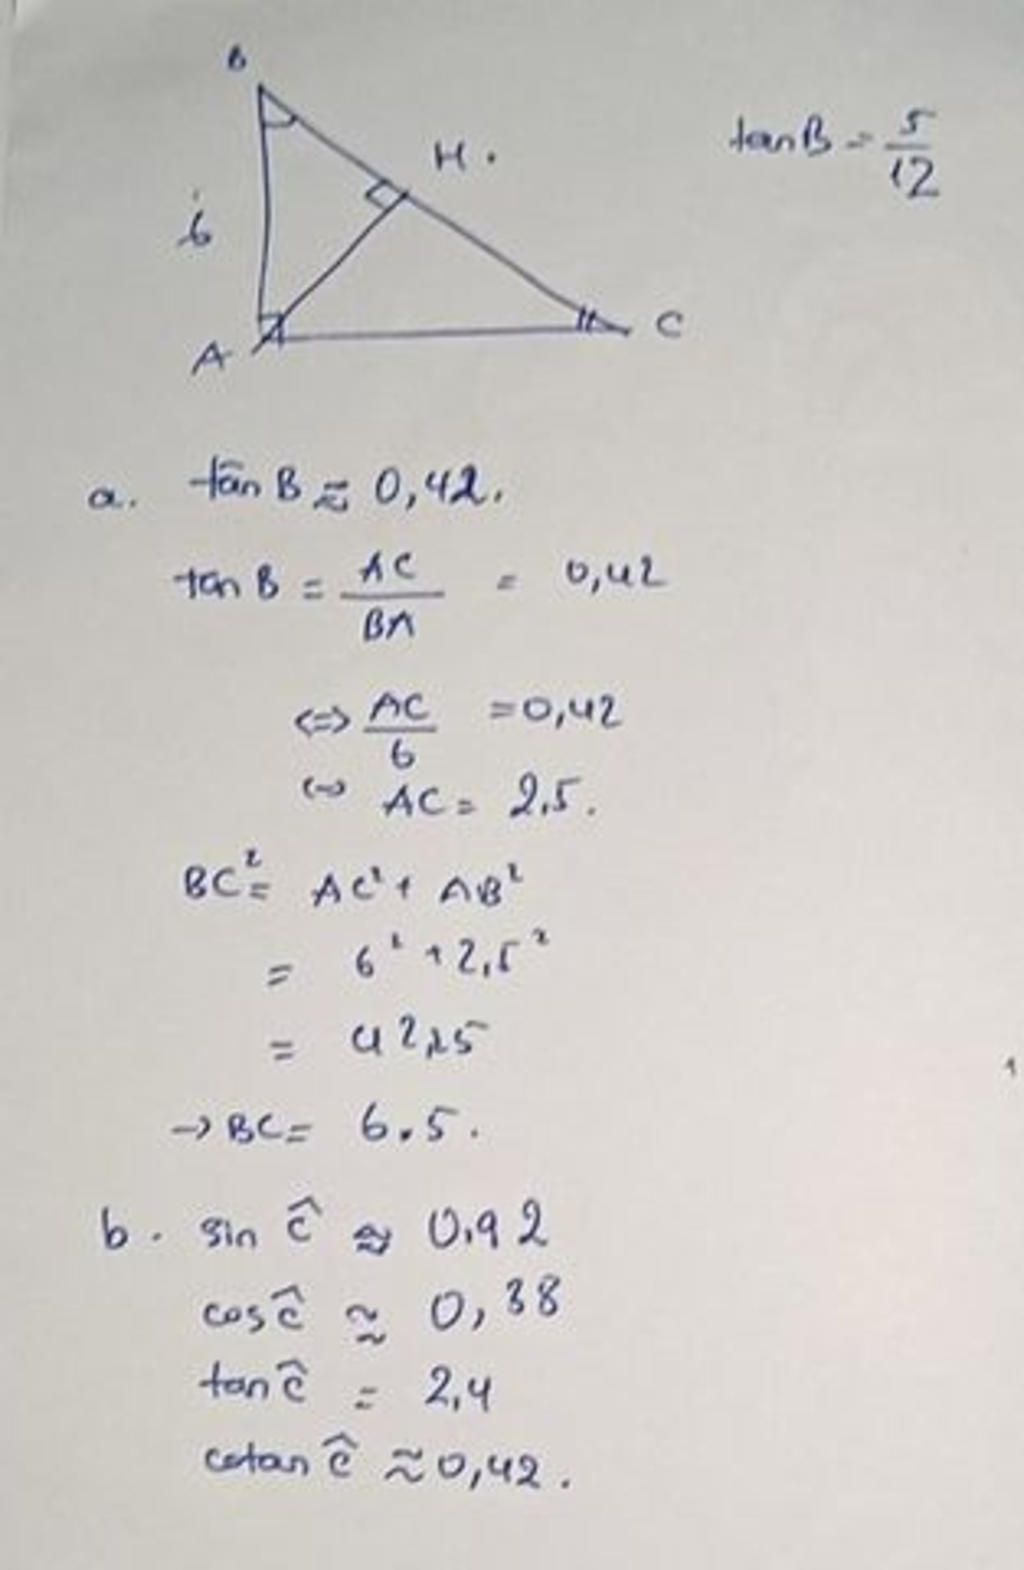 B
H.
tan B = 5/12
6
A
C
a. tan B ≈ 0,42.
tan B = AC/BA = 0,42
<=> AC/6 = 0,42
<=> AC = 2,5.
BC² = AC² + AB²
= 6² + 2,5²
= 42,25
→ BC = 6.5.
b. sin Ĉ ≈ 0.92
cos Ĉ ≈ 0,38
tan Ĉ = 2,4
cotan Ĉ ≈ 0,42.